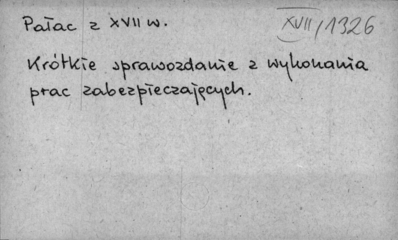 Pałac z XVII w.
XVII/1326
Krótkie sprawozdanie z wykonania
prac zabezpieczających.